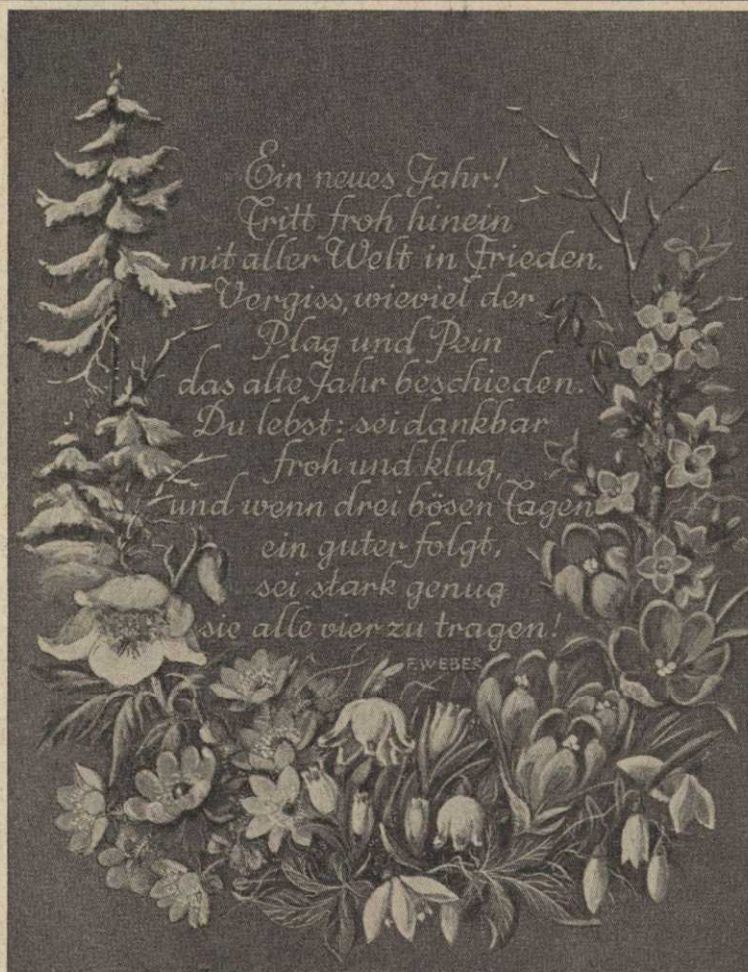 Ein neues Jahr!
Tritt froh hinein
mit aller Welt in Frieden.
Vergiss, wieviel der
Plag und Pein
das alte Jahr beschieden.
Du lebst: sei dankbar
froh und klug,
und wenn drei bösen Tagen
ein guter folgt,
sei stark genug
sie alle vier zu tragen!
F. WEBER